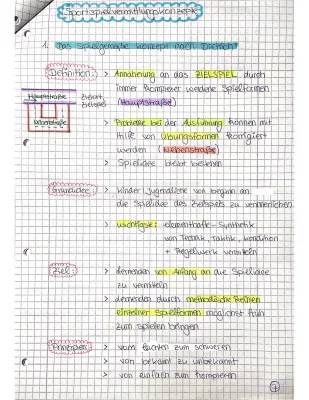 Sportspielvermittlungskonzepte
1. Das Spielgemäße Konzept nach Dietrich
Definition: > Annäherung an das ZIELSPIEL durch
immer komplexer werdene Spielformen
(Hauptstraße)
Hauptstraße
Nebenstraße
> Probleme bei der Ausführung können mit
Hilfe von Übungsformen korrigiert
werden (Nebenstraße)
> Spielidee bleibt bestehen
Grundidee: > Kinder/Jugendliche von beginn an
die Spielidee des Zielspiels zu vermitteln
> wichtigste: elementhafte-Synthetik
von Technik, Taktik, Kondition
+ Regelwerk vermitteln
Ziel: > Lernenden von Anfang an die Spielidee
zu vermitteln
> Lernenden durch methodische Reihen
einzelner Spielformen möglichst früh
zum spielen bringen
Prinzipien: > vom leichten zum schweren
> von bekannt zu unbekannt
> von einfach zum komplexen